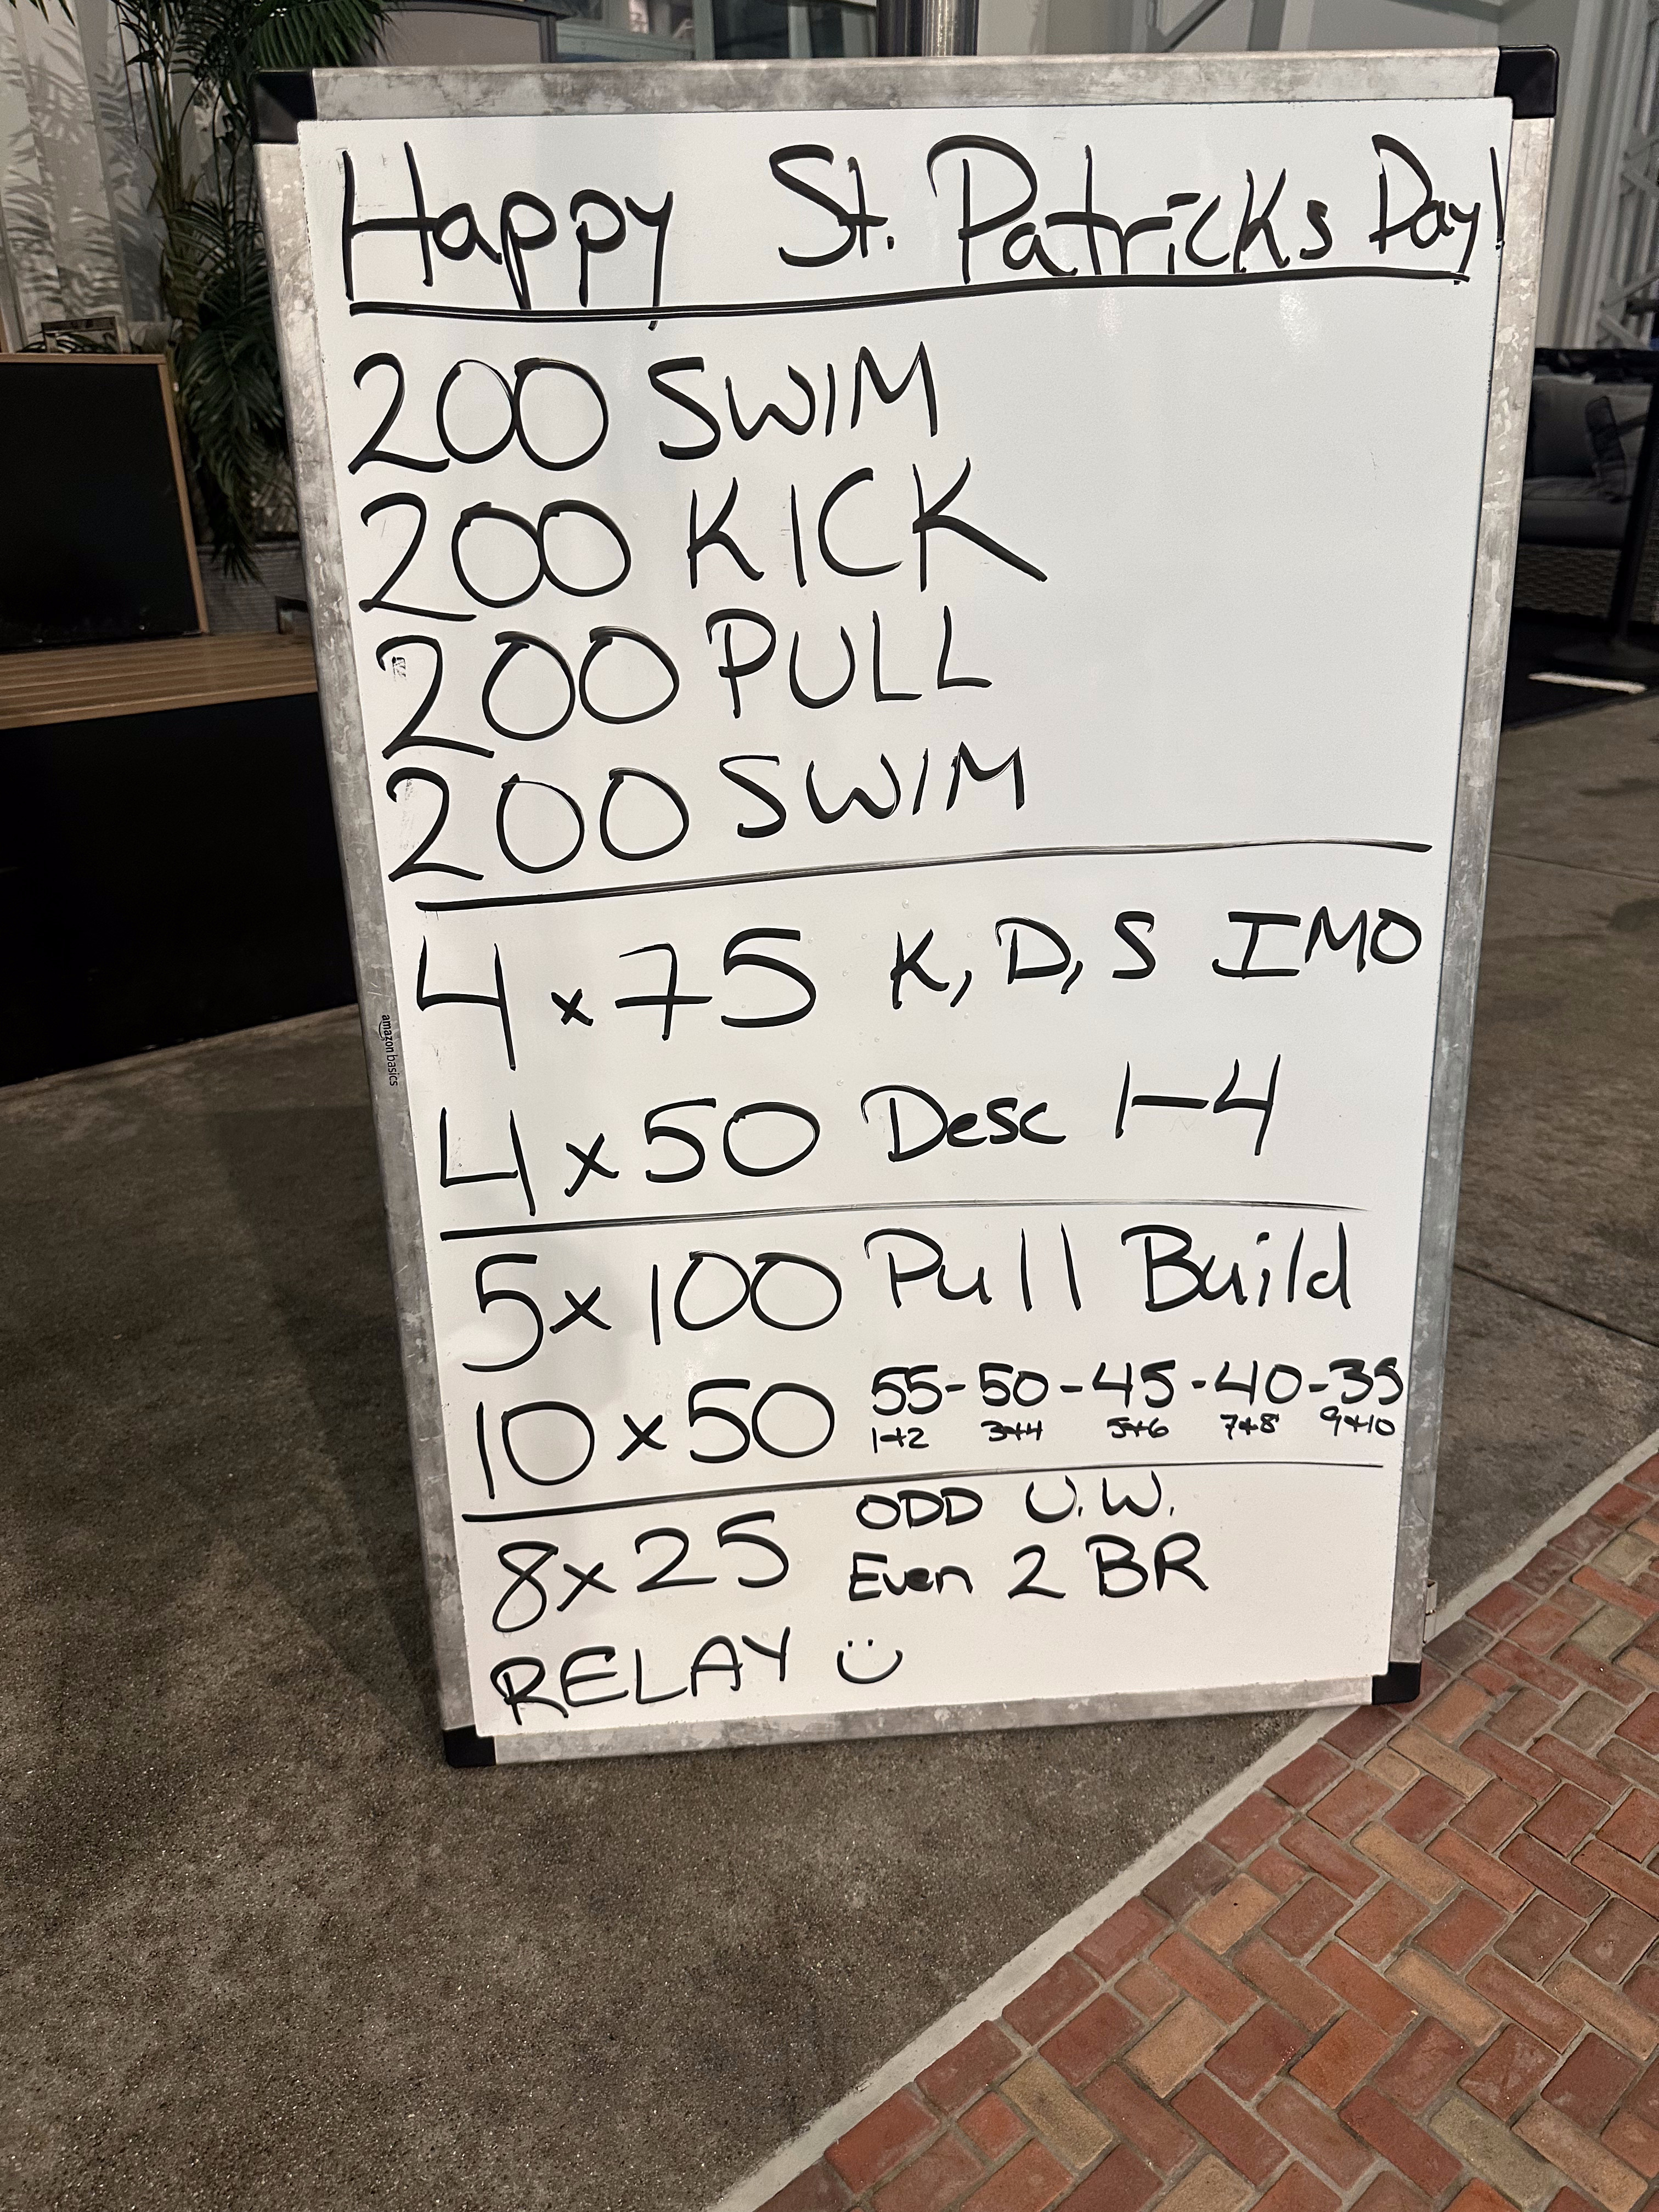 Happy St. Patricks Day!
200 SWIM
200 KICK
200 PULL
200 SWIM
4 x 75 K, D, S IMO
4 x 50 Desc 1-4
5 x 100 Pull Build
10 x 50 55-50-45-40-35
1+2 3+4 5+6 7+8 9+10
8 x 25 ODD U.W.
Even 2 BR
RELAY :)
amazon basics